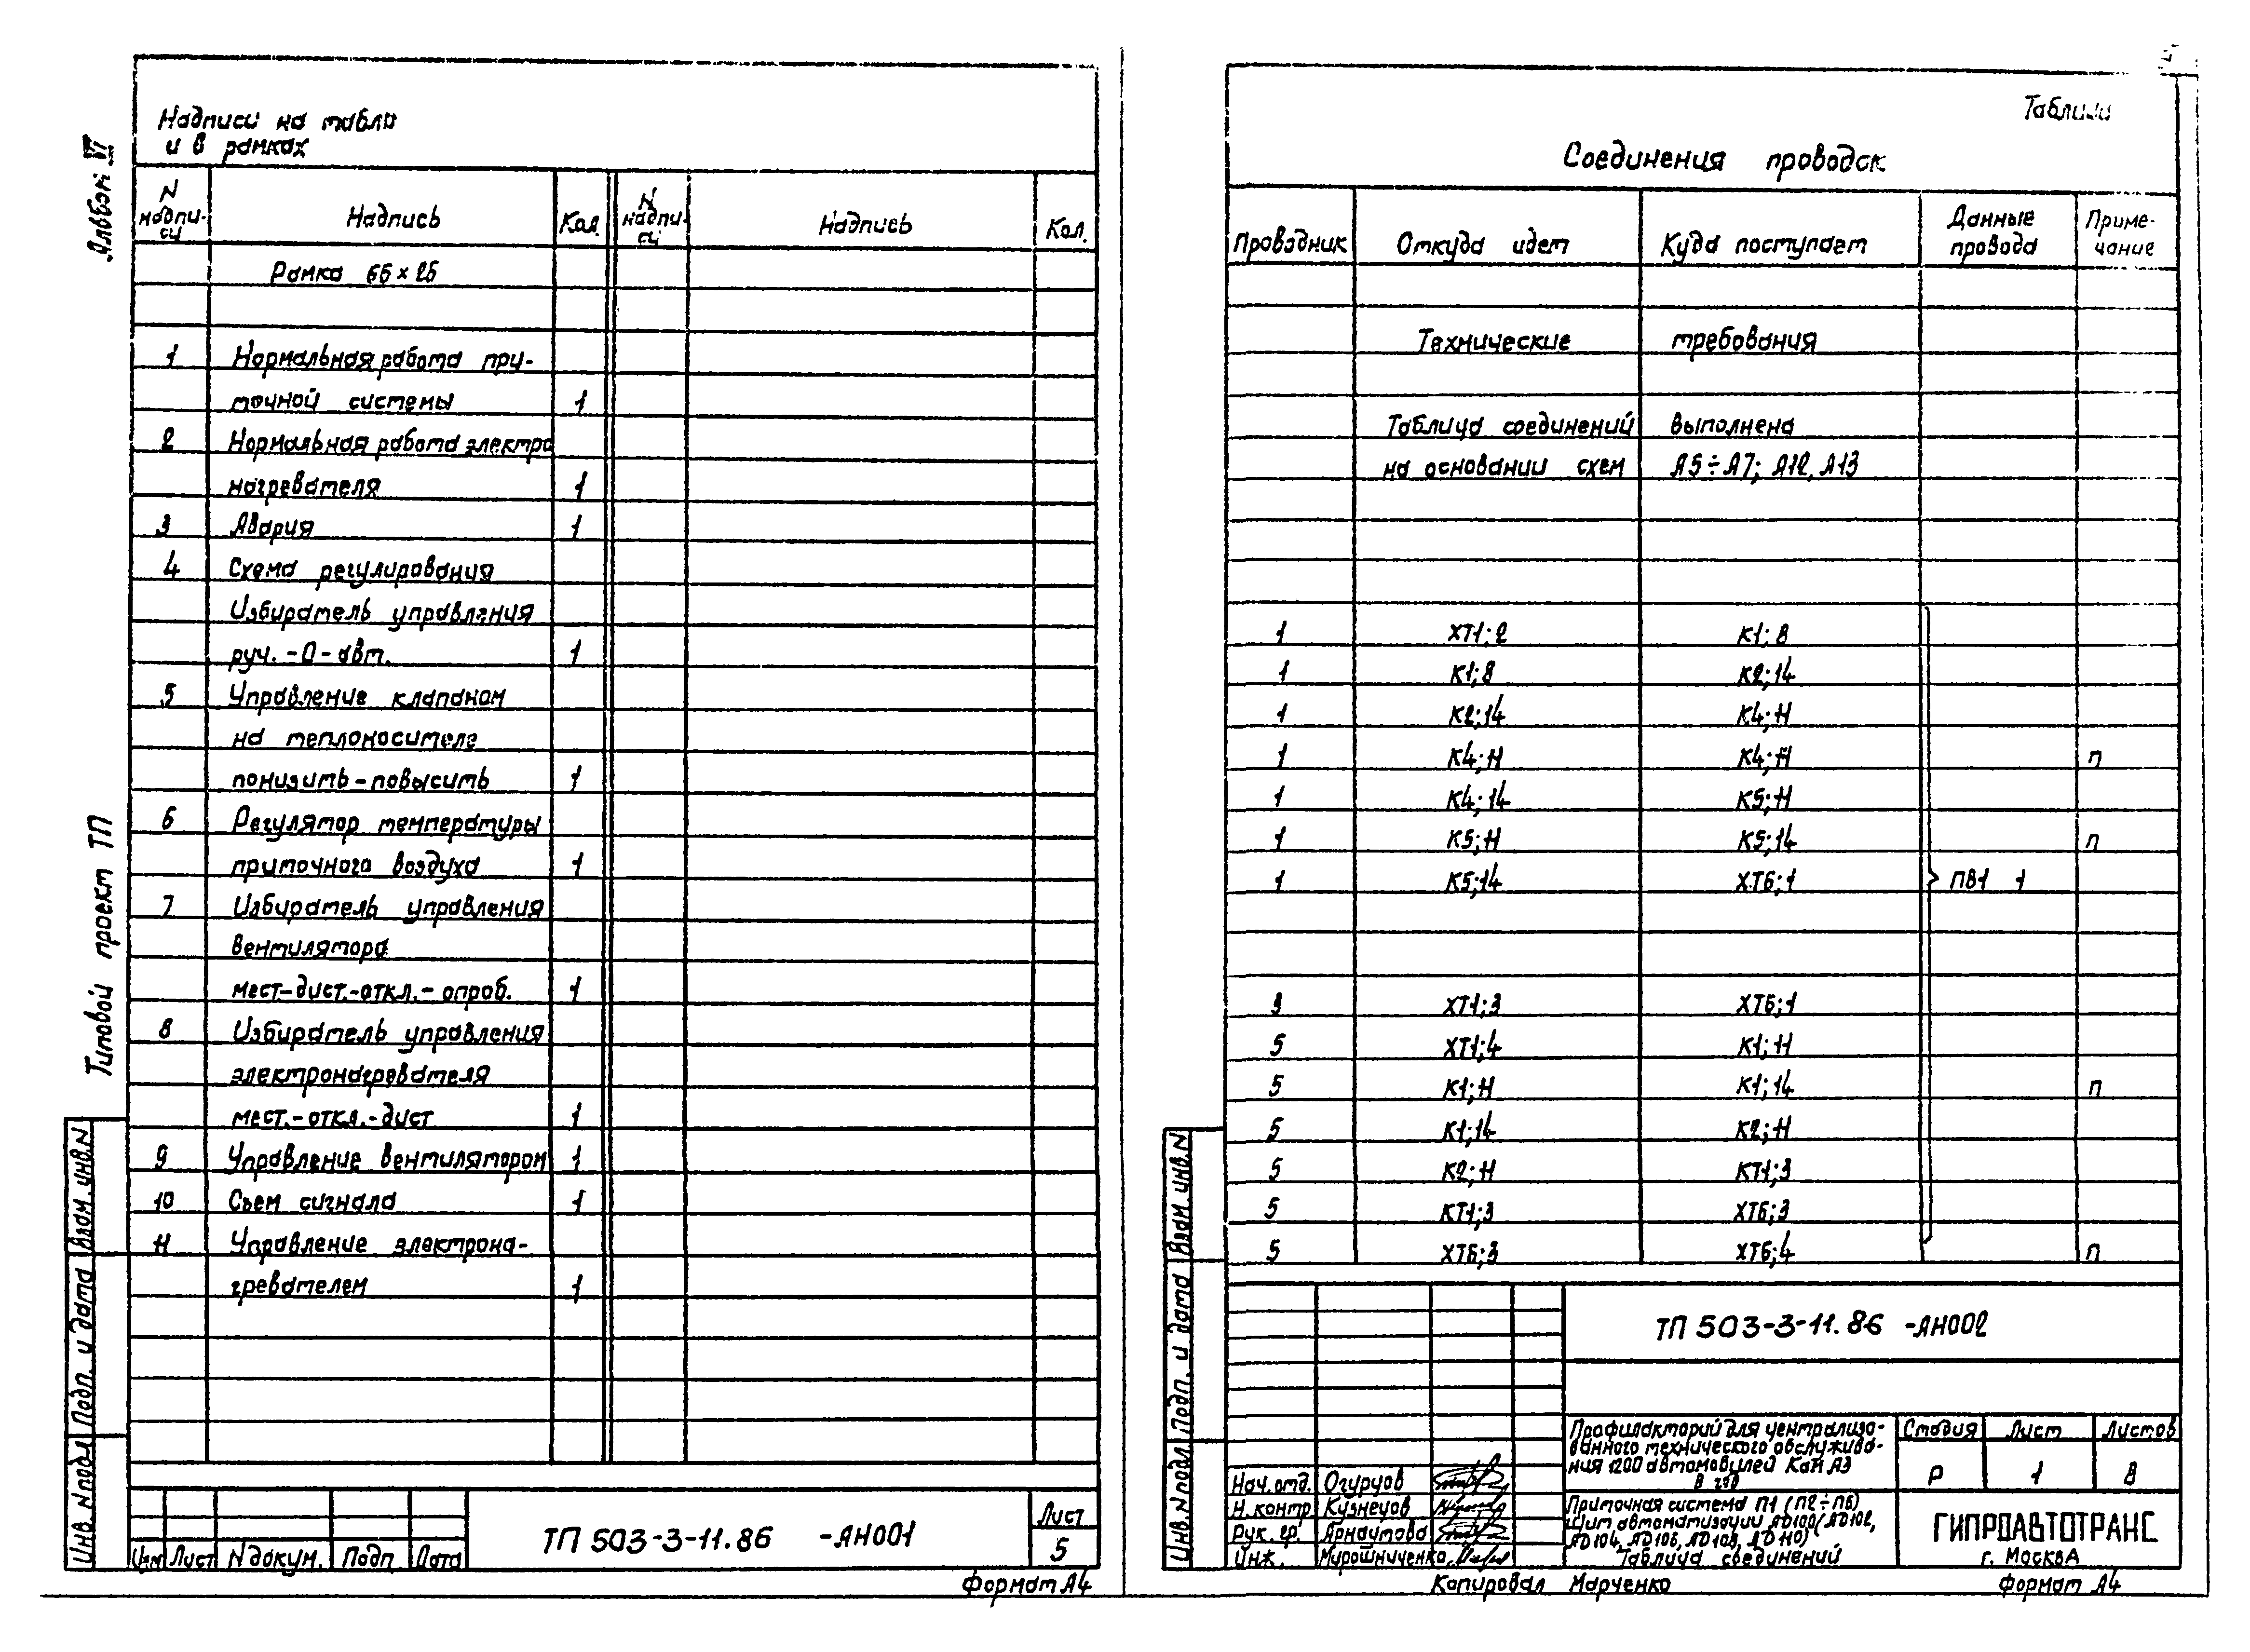 Альбом VI
Типовой проект ТП
Надписи на табло
и в рамках
N надписи Надпись Кол. N надписи Надпись Кол.
Рамка 66×26
1 Нормальная работа при-
точной системы 1
2 Нормальная работа электро
нагревателя 1
3 Авария 1
4 Схема регулирования
Избиратель управления
руч. - О - авт. 1
5 Управление клапаном
на теплоносителе
понизить - повысить 1
6 Регулятор температуры
приточного воздуха 1
7 Избиратель управления
вентилятора
мест-дист.-откл.- опроб. 1
8 Избиратель управления
электронагревателя
мест.- откл.- дист 1
9 Управление вентилятором 1
10 Съем сигнала 1
11 Управление электрона-
гревателем 1
Взам. инв. N
Подп. и дата
Инв. N подл
Изм Лист N докум. Подп Дата
ТП 503-3-11.86 -АН001
Лист
5
Формат А4
Таблица
Соединения проводок
Проводник Откуда идет Куда поступает Данные провода Приме-чание
Технические требования
Таблица соединений выполнена
на основании схем А5÷А7; А12, А13
1 XT1; 2 K1; 8
1 K1; 8 K2; 14
1 K2; 14 K4; 11
1 K4; 11 K4; 11 п
1 K4; 14 K5; 11
1 K5; 11 K5; 14 п
1 K5; 14 XT6; 1 ПВ1 1
3 XT1; 3 XT6; 1
5 XT1; 4 K1; 11
5 K1; 11 K1; 14 п
5 K1; 14 K2; 11
5 K2; 11 KT1; 3
5 KT1; 3 XT6; 3
5 XT6; 3 XT6; 4 п
Взам. инв. N
Подп. и дата
Инв. N подл
ТП 503-3-11.86 -АН002
Профилакторий для централизо-
ванного технического обслужива-
ния 1200 автомобилей КамАЗ
в год
Стадия Лист Листов
Р 1 8
Нач. отд. Огурцов
Н. контр Кузнецов
Рук. гр. Арнаутова
Инж. Мирошниченко
Приточная система П1 (П2÷П6)
Щит автоматизации АD100 (АD102,
АD104, АD106, АD108, АD110)
Таблица соединений
ГИПРОАВТОТРАНС
г. Москва
Копировал Марченко
Формат А4